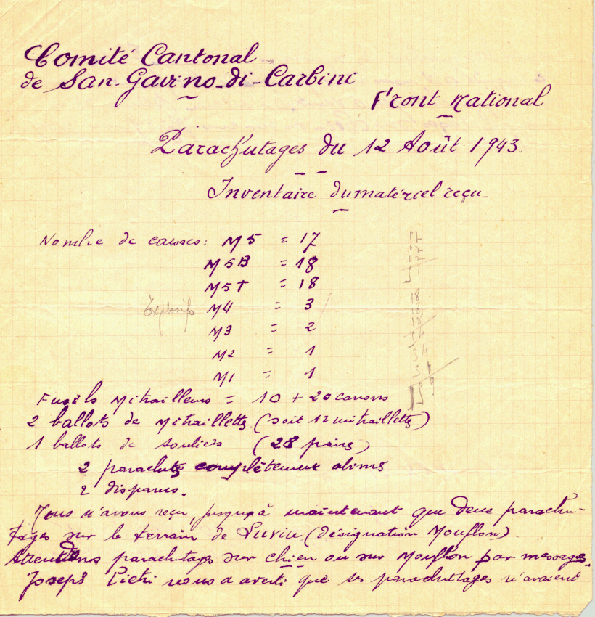 Comité Cantonal
de San-Gavino-di-Carbini
Front National
Parachutages du 12 Août 1943
Inventaire du matériel reçu
Nombre de caisses: M5 = 17
M5B = 18
M5T = 18
Explosifs M4 = 3
M3 = 2
M2 = 1
M1 = 1
Fusils Mitrailleurs = 10 + 20 canons
2 ballots de Mitraillettes (soit 12 mitraillettes)
1 ballots de souliers (28 paires)
2 parachutes complètement abimés
2 disparus.
Nous n'avons reçu jusqu'à maintenant que deux parachu-
tages sur le terrain de (désignation Mouflon)
Attendons parachutage sur chien ou sur Mouflon par message.
Joseph Pietri nous a averti que les parachutages n'avaient